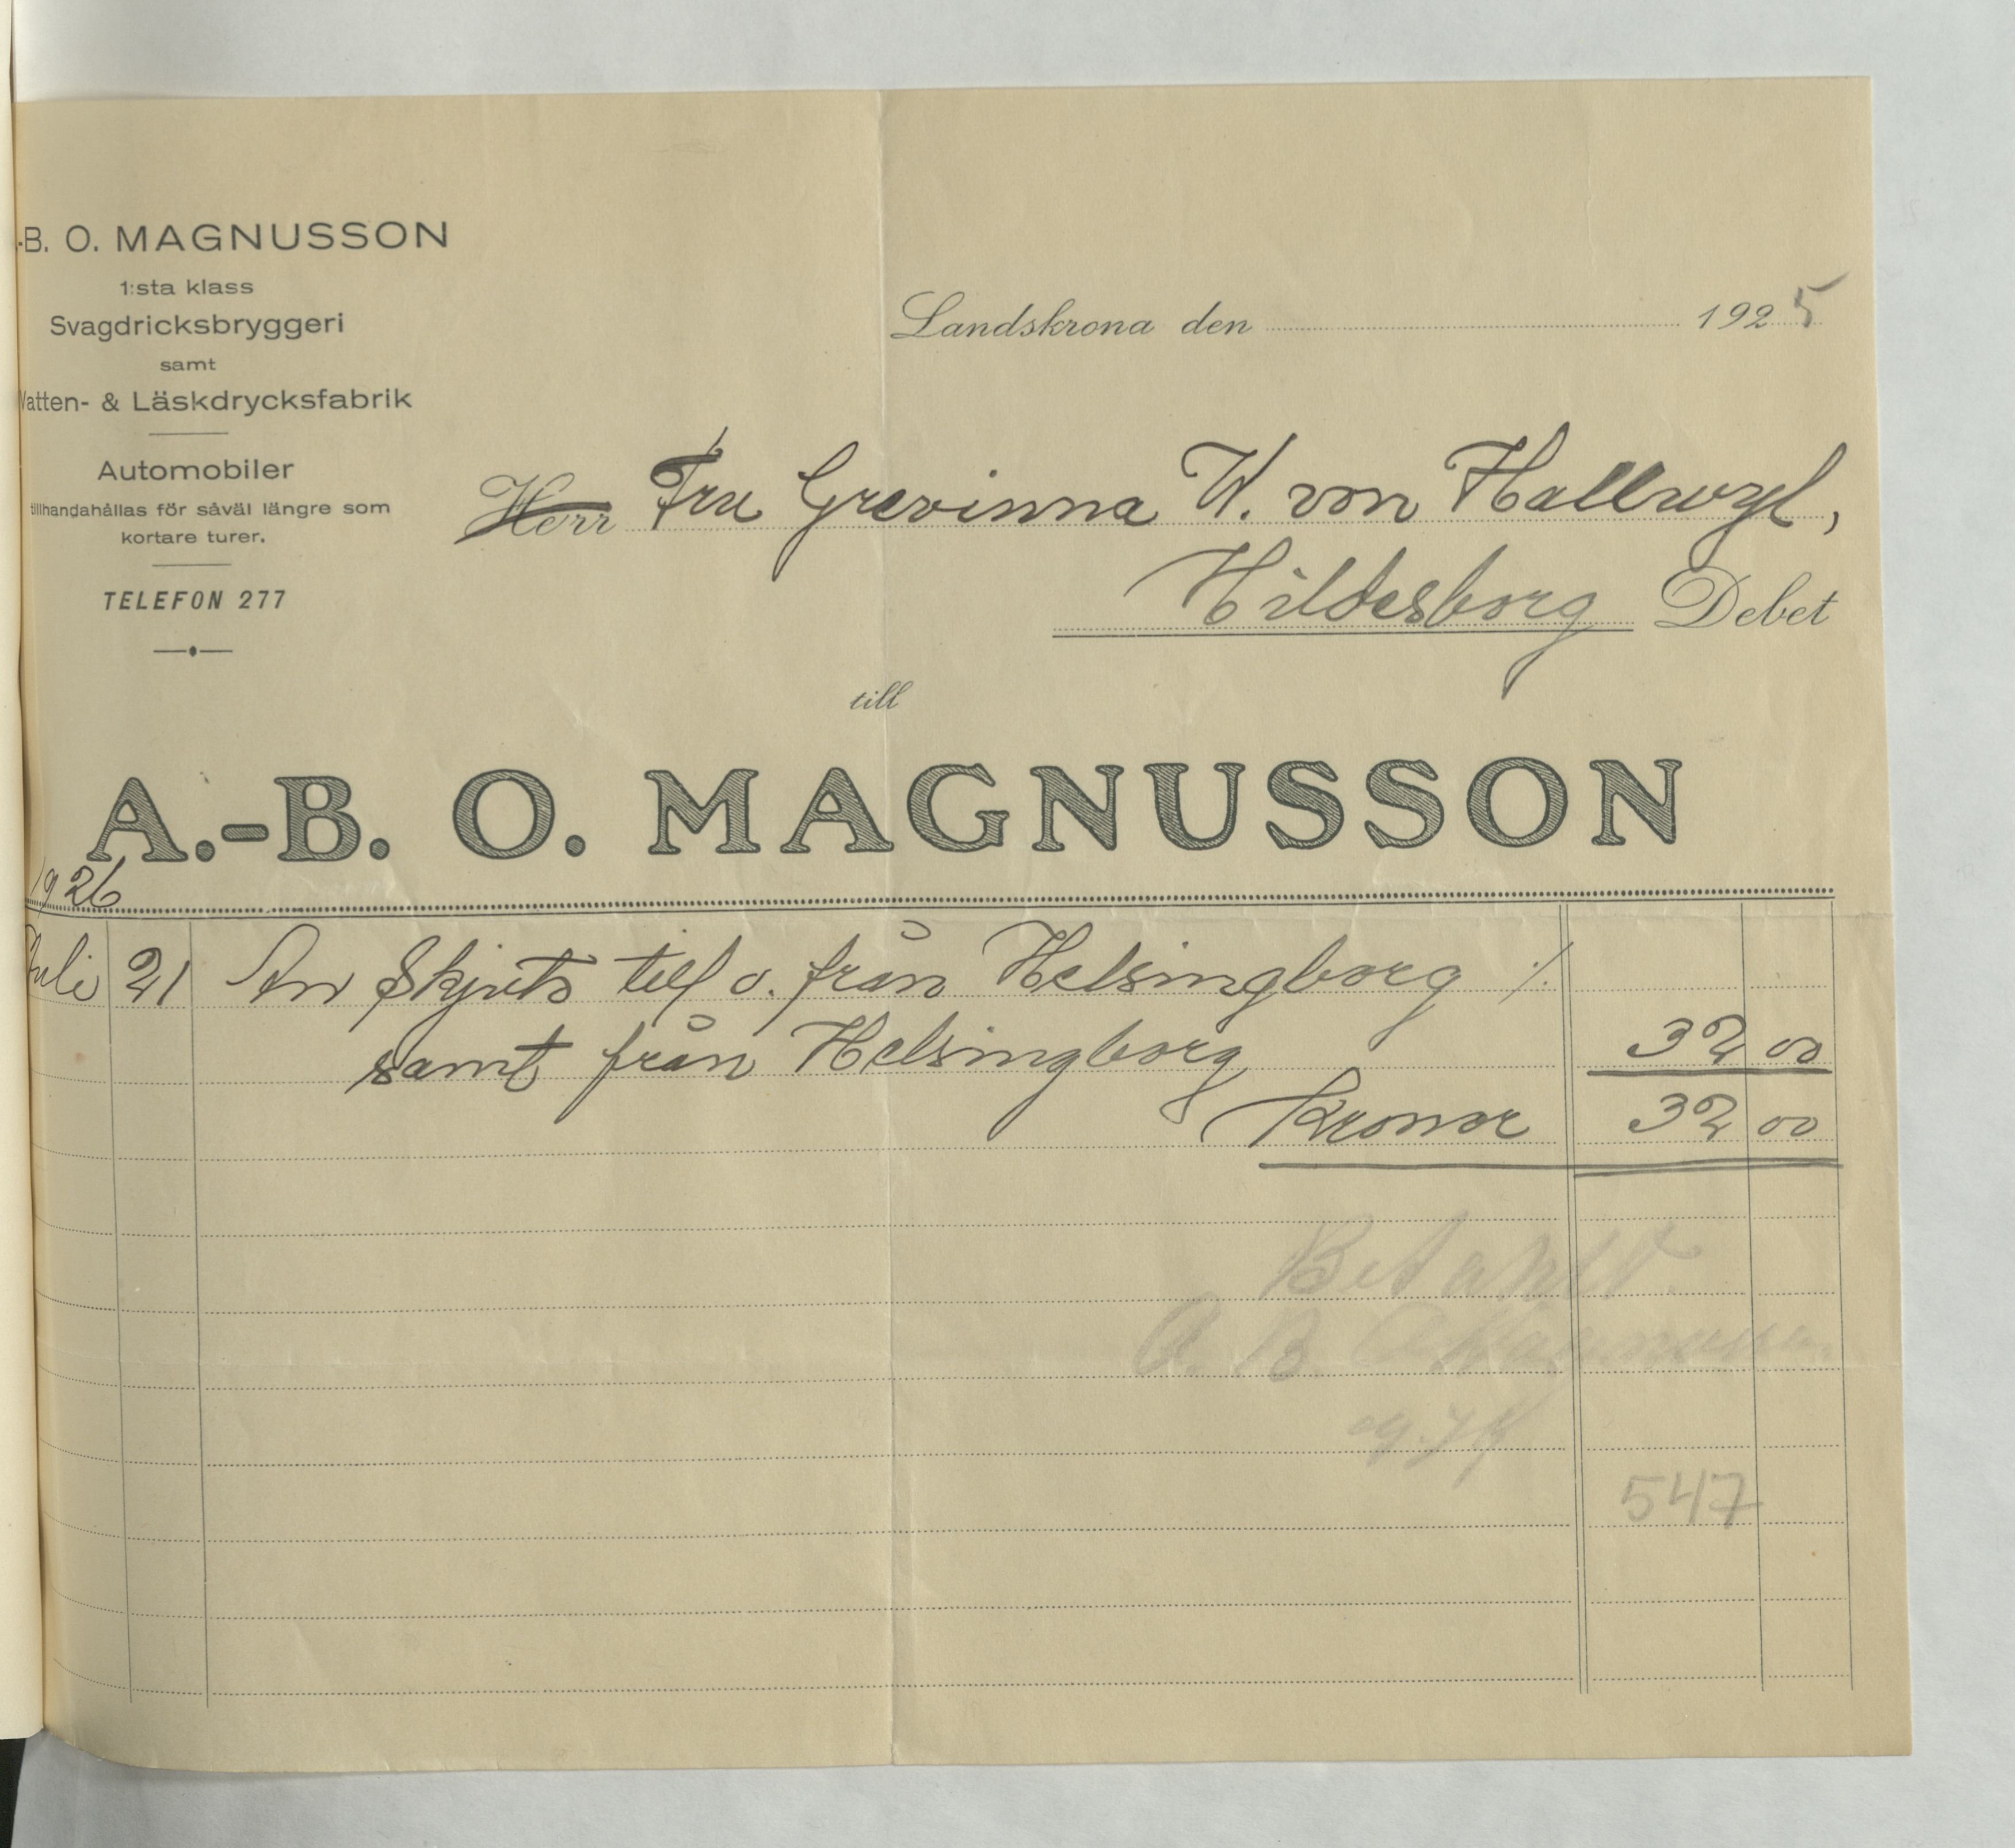 -B. O. MAGNUSSON
1:sta klass
Svagdricksbryggeri
samt
Vatten- & Läskdrycksfabrik
Automobiler
tillhandahållas för såväl längre som
kortare turer.
TELEFON 277
Landskrona den 1925
Herr Fru Grevinna W. von Hallwyl,
Hildesborg Debet
till
A.-B. O. MAGNUSSON
1926
Juli 21 An Skjuts till o. från Helsingborg ./.
samt från Helsingborg 32 00
Kronor 32 00
Betahlt.
A. B. O Magnusson
547